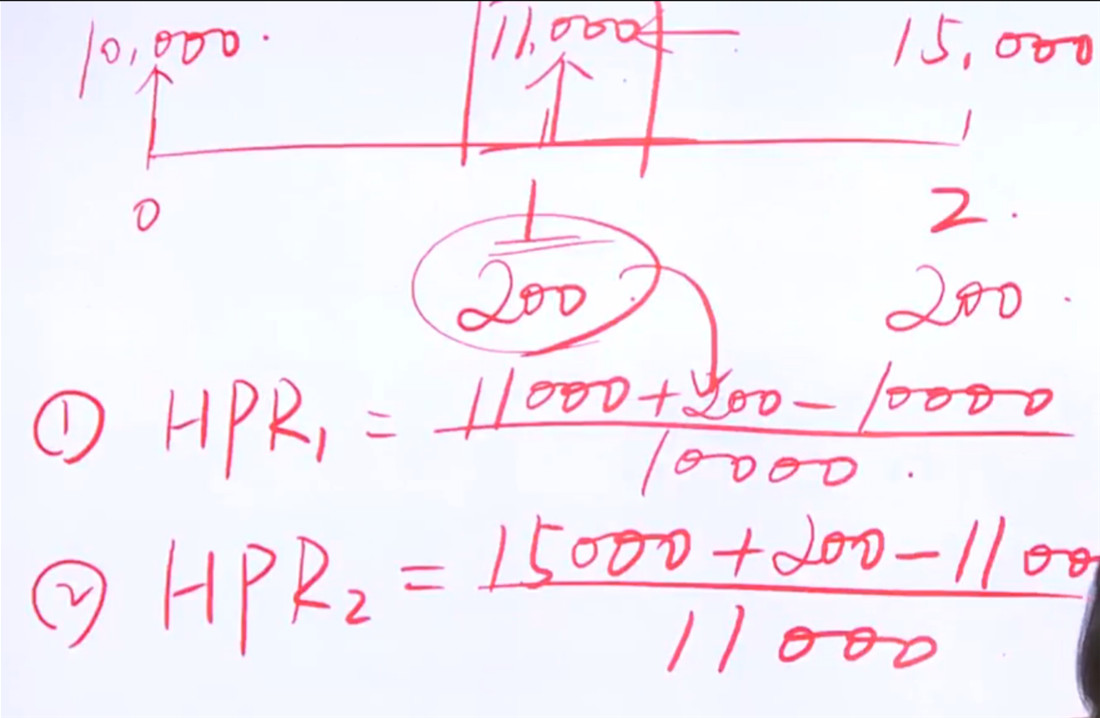 10,000. 11,000 15,000
0 1 2.
200 200.
① HPR₁ = 11000+200-10000
10000.
② HPR₂ = 15000+200-1100
11000